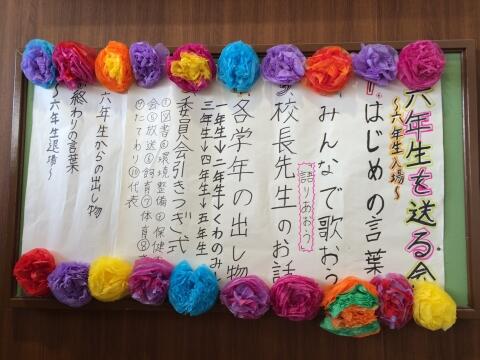 六年生を送る会
～六年生入場～
はじめの言葉
みんなで歌おう
語りあおう
校長先生のお話
各学年の出し物
一年生↓二年生↓くわのみ
三年生↓四年生↓五年生
委員会引きつぎ式
①図書②環境整備③保健
会⑤放送⑥飼育⑦体育⑧
⑨たてわり⑩代表
六年生からの出し物
終わりの言葉
～六年生退場～